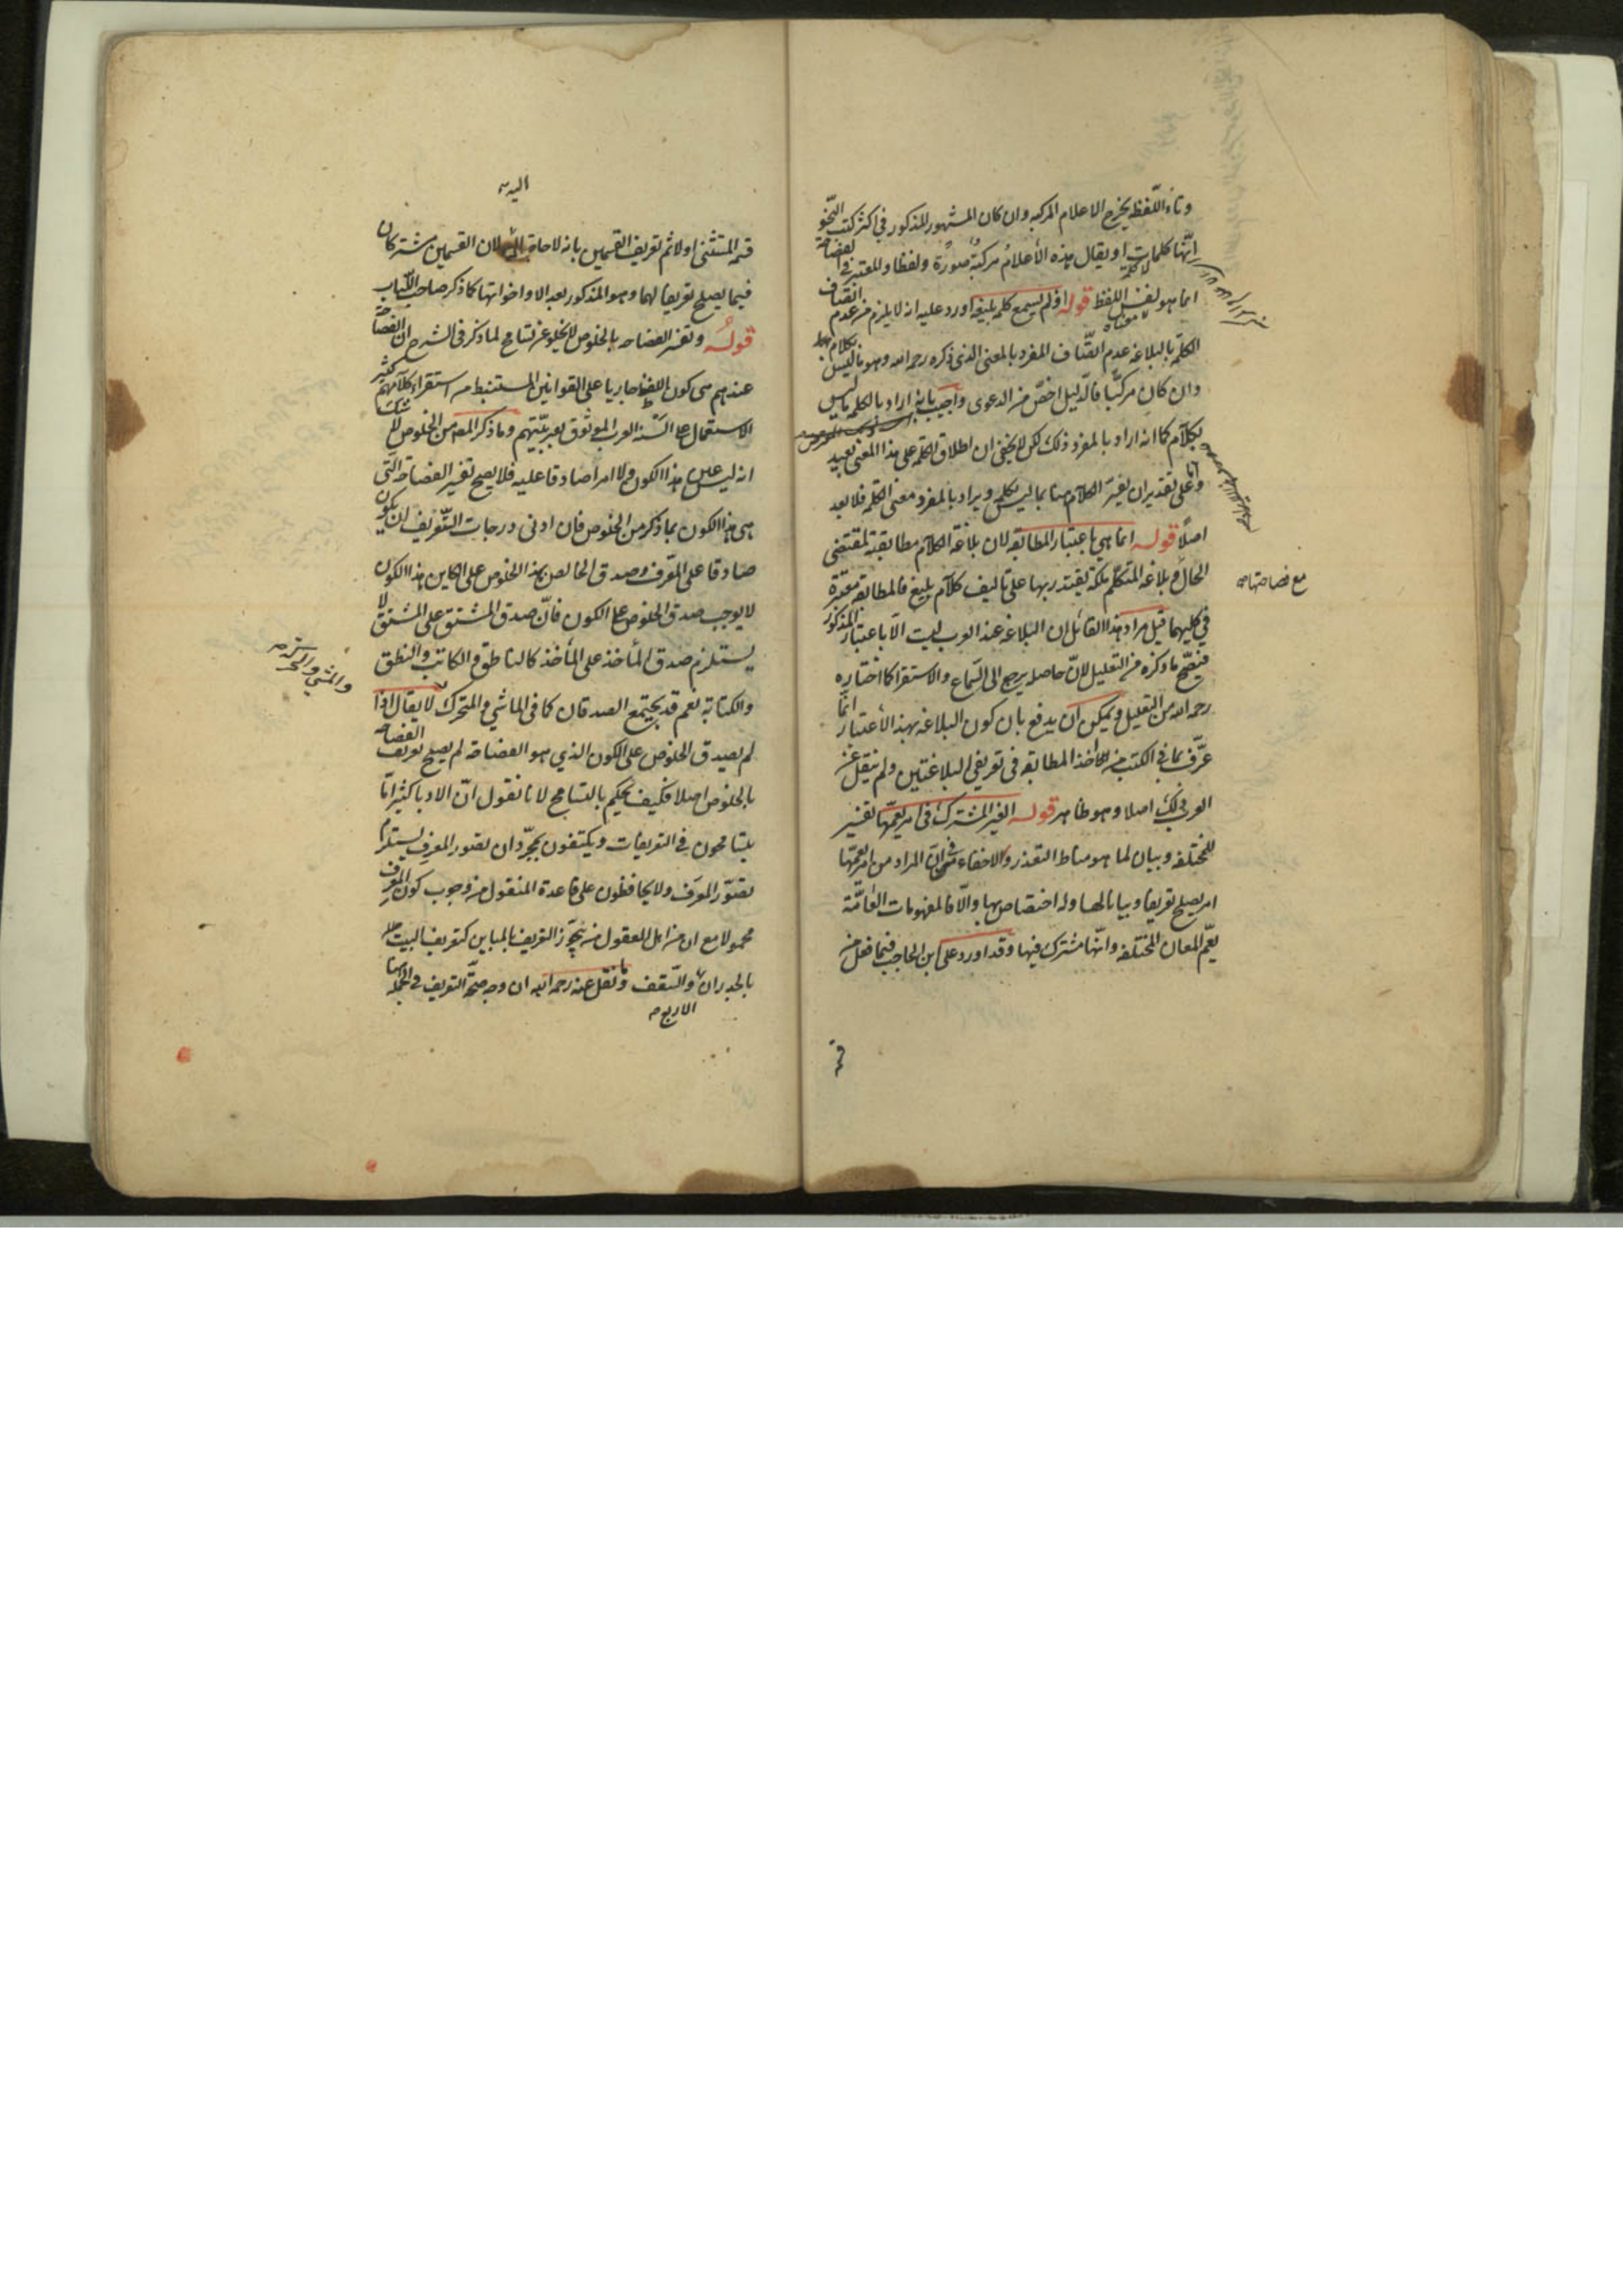 وتاء اللفظة يخرج الاعلام المركبة وان كان المشهور المذكور في اكثر كتب النحو
انها كلمات او يقال هذه الأعلام مركبة صورة ولفظا والمعتبر في الفصاحة
انما هو نفس اللفظ قوله اذ لم يسمع كلمة بليغة اورد عليه انه لا يلزم من عدم اتصاف
الكلمة بالبلاغة عدم اتصاف المفرد بالمعنى الذى ذكره رحمه الله وهو ما ليس بكلام
وان كان مركبا فالدليل اخص من الدعوى واجيب بانه اراد بالكلمة ما ليس
بكلام كما انه اراد بالمفرد ذلك لكن لا يخفى ان اطلاق الكلمة على هذا المعنى بعيد
واما على تقدير ان يفسر الكلام هنا بما ليس بكلمة ويراد بالمفرد معنى الكلمة فلا بعد
اصلا قوله انما هي باعتبار المطابقة لان بلاغة الكلام مطابقته لمقتضى
الحال وبلاغة المتكلم ملكة يقتدر بها على تاليف كلام بليغ فالمطابقة معتبرة
مع فصاحتها صح
في كليهما قيل مراد هذا القائل ان البلاغة عند العرب ليست الا باعتبار المذكور
فيصح ما ذكره من التعليل لان حاصله يرجع الى السماع والاستقرا كما اختاره
رحمه الله من التعليل ويمكن ان يدفع بان كون البلاغة بهذا الاعتبار انما
عرف مما في الكتب من اخذ المطابقة في تعريفي البلاغتين ولم ينقل عن
العرب ذلك اصلا وهو ظاهر قوله الغير المشتركة في امر يعمها تفسير
للمختلفة وبيان لما هو مناط التعذر والاخفاء في ان المراد من امر يعمها
امر يصلح تعريفا وبيانا لها وله اختصاص بها والا فالمفهومات العامة
يعم المعاني المختلفة وانها مشترك فيها وقد اورد على ابن الحاجب فيما فعل من
قسمة
اليه صح
قسمة المستثنى اولا ثم تعريف القسمين بانه لا حاجة لان القسمين مشتركان
فيما يصلح تعريفا لهما وهو المذكور بعد الا واخواتها كما ذكر صاحب اللباب
قوله وتفسير الفصاحة بالخلوص لا يخلو عن تسامح لما ذكر في الشرح ان الفصاحة
عندهم هى كون اللفظ جاريا على القوانين المستنبطة من استقراء كلامهم كثير
الاستعمال على السنة العرب الموثوق بعربيتهم وما ذكر المص من الخلوص لا شك
انه ليس عين هذا الكون ولا امرا صادقا عليه فلا يصح تفسير الفصاحة التى
هى هذا الكون بما ذكر من الخلوص فان ادنى درجات التعريف ان يكون
صادقا على المعرف وصدق الخالص بهذا الخلوص على الكاين هذا الكون
لا يوجب صدق الخلوص على الكون فان صدق المشتق على المشتق لا
يستلزم صدق المأخذ على المأخذ كالناطق والكاتب والنطق
والمشي والتحرك صح
والكتابة نعم قد يجتمع الصدقان كما فى الماشي والمتحرك لا يقال اذا
لم يصدق الخلوص على الكون الذي هو الفصاحة لم يصح تعريف الفصاحة
بالخلوص اصلا فكيف يحكم بالتسامح لانا نقول ان الادبا كثيرا ما
يتسامحون في التعريفات ويكتفون بمجرد ان تصور المعرف يستلزم
تصور المعرف ولا يحافظون على قاعدة المنقول من وجوب كون المعرف
محمولا مع ان من اهل المعقول من يجوز التعريف بالمباين كتعريف البيت
بالجدران والسقف وما نقل عنه رحمه الله ان وجه صحة التعريف في الجملة
الاربع صح